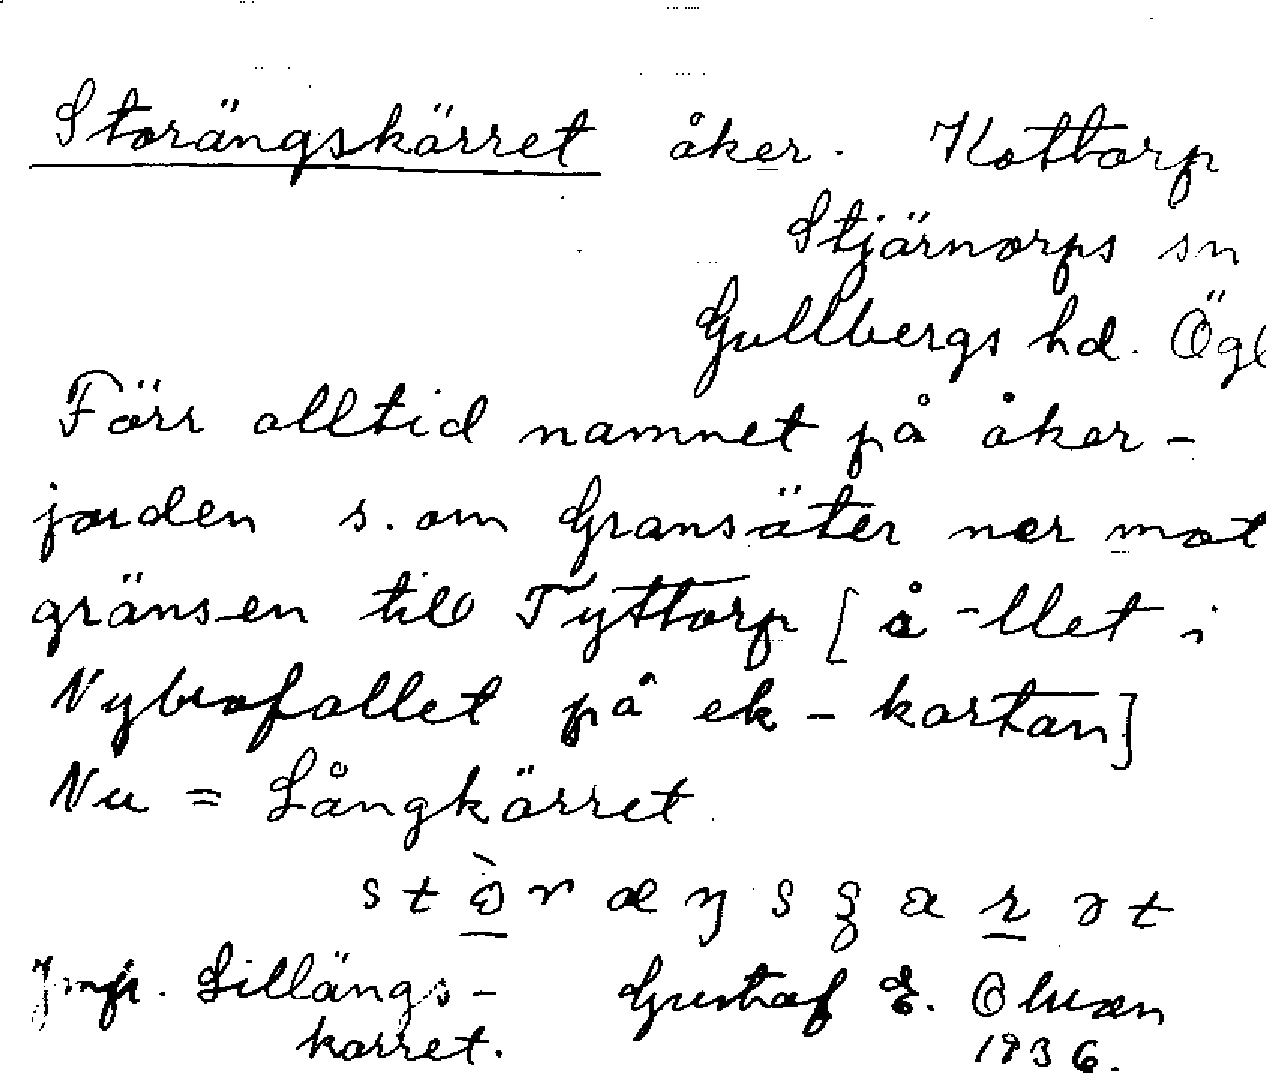 Storängskärret åker. Kottorp
Stjärnorps sn
Gullbergs hd. Ögl
Förr alltid namnet på åker-
jorden s. om Gransäter ner mot
gränsen till Tyttorp [å -llet i
Nybrofallet på ek-kartan]
Nu = Långkärret.
Jmfr. Lillängs- Gustaf E. Olsson
karret. 1936.